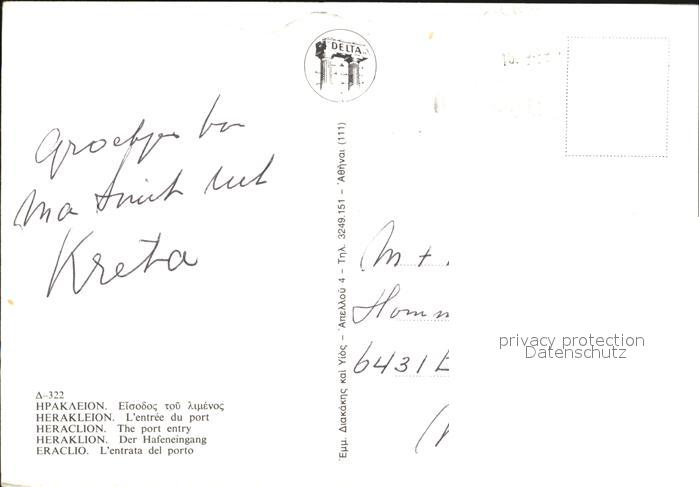 DELTA
Groetjes van
Ma Smit uit
Kreta
Δ–322
ΗΡΑΚΛΕΙΟΝ. Εἴσοδος τοῦ λιμένος
HERAKLEION. L'entrée du port
HERACLION. The port entry
HERAKLION. Der Hafeneingang
ERACLIO. L'entrata del porto
Ἐμμ. Διακάκης καὶ Υἱός – Ἀπελλοῦ 4 – Τηλ. 3249.151 – Ἀθῆναι (111)
M +
Homm
6431
privacy protection
Datenschutz